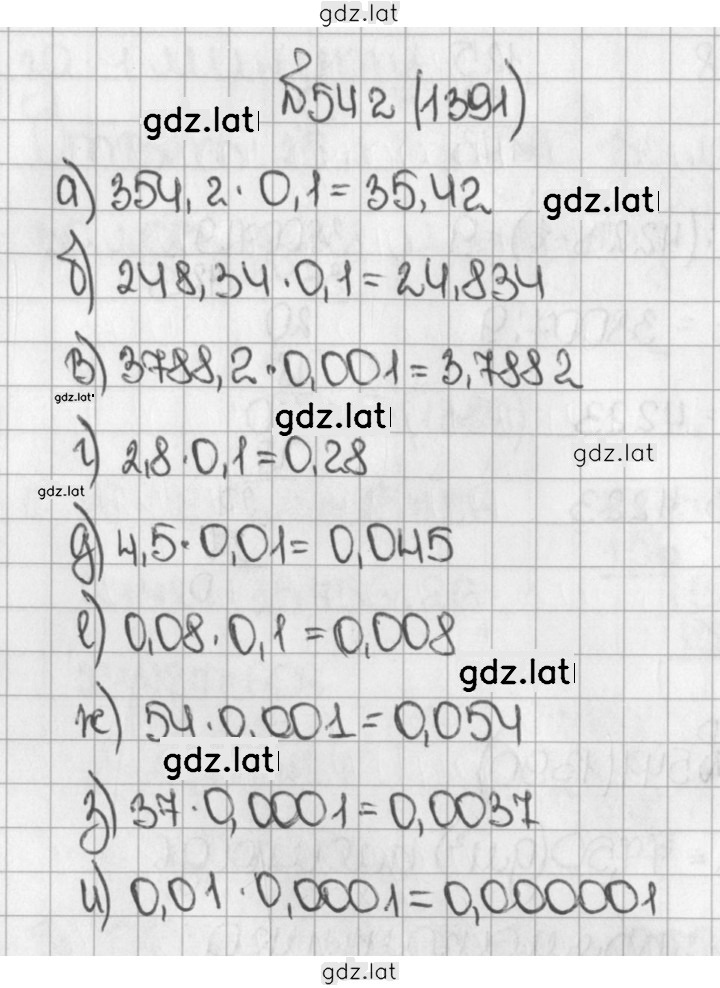 gdz.lat
№542 (1391)
gdz.lat
а) 354,2 · 0,1 = 35,42
gdz.lat
б) 248,34 · 0,1 = 24,834
в) 3788,2 · 0,001 = 3,7882
gdz.lat
gdz.lat
г) 2,8 · 0,1 = 0,28
gdz.lat
gdz.lat
д) 4,5 · 0,01 = 0,045
е) 0,08 · 0,1 = 0,008
gdz.lat
ж) 54 · 0,001 = 0,054
gdz.lat
з) 37 · 0,0001 = 0,0037
и) 0,01 · 0,0001 = 0,000001
gdz.lat